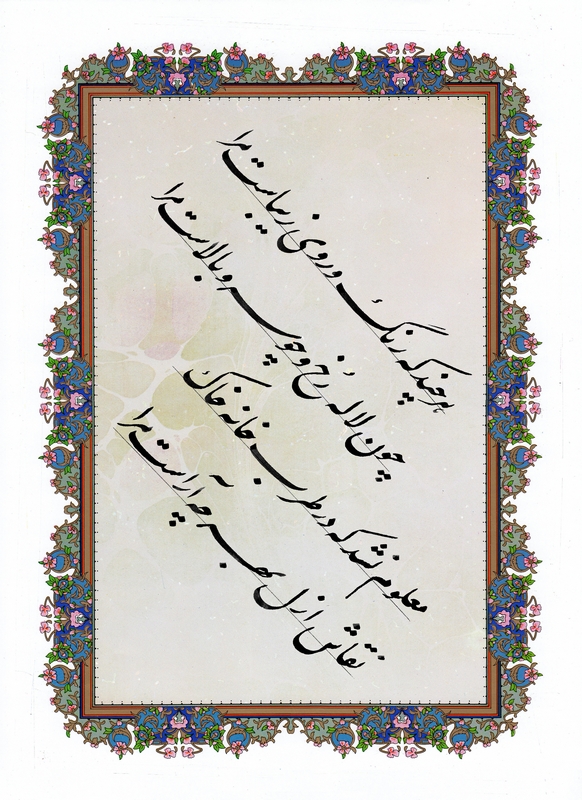 هر چند که رنگ و روی زیباست مرا
چون لاله رخ و چو سرو بالاست مرا
معلوم نشد که در طربخانه خاک
نقاش ازل بهر چه آراست مرا